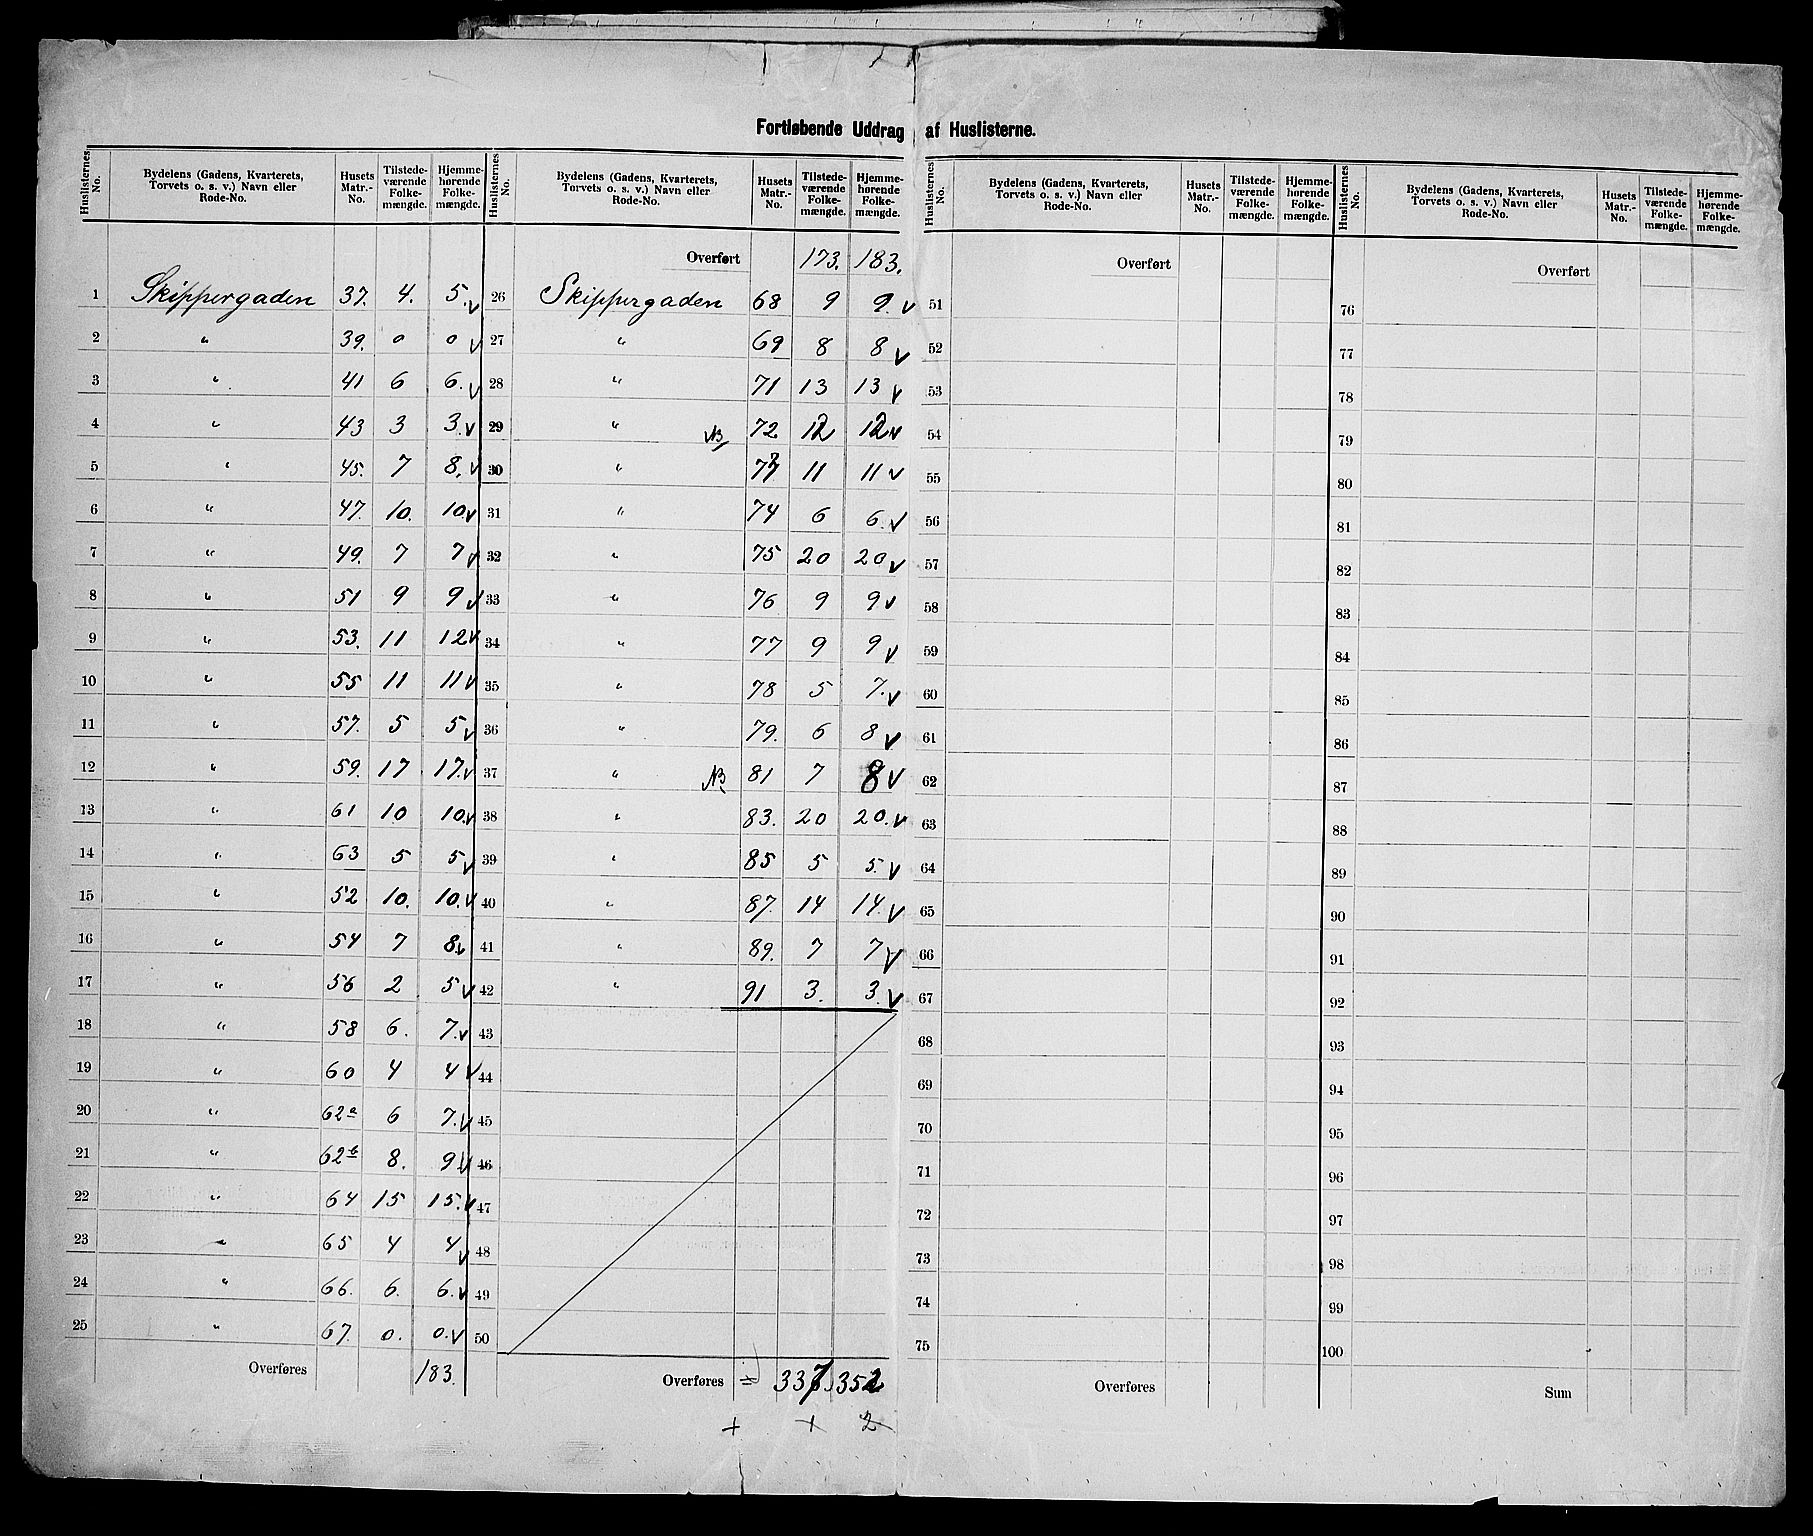 Fortløbende Uddrag af Huslisterne.
Huslisternes No. | Bydelens (Gadens, Kvarterets, Torvets o. s. v.) Navn eller Rode-No. | Husets Matr.-No. | Tilstedeværende Folkemængde. | Hjemmehørende Folkemængde.
1 Skippergaden 37. 4. 5. v
2 " 39. 0 0 v
3 " 41 6 6. v
4 " 43 3 3. v
5 " 45. 7 8. v
6 " 47. 10. 10. v
7 " 49. 7 7 v
8 " 51 9 9 v
9 " 53. 11 12 v
10 " 55 11 11 v
11 " 57. 5 5 v
12 " 59. 17 17. v
13 " 61 10 10. v
14 " 63 5 5 v
15 " 52 10. 10. v
16 " 54 7 8 v
17 " 56 2 5 v
18 " 58 6. 7. v
19 " 60 4 4 v
20 " 62a 6 7. v
21 " 62b 8. 9 v
22 " 64 15 15. v
23 " 65 4 4 v
24 " 66. 6. 6. v
25 " 67. 0. 0. v
Overføres 183.
Huslisternes No. | Bydelens (Gadens, Kvarterets, Torvets o. s. v.) Navn eller Rode-No. | Husets Matr.-No. | Tilstedeværende Folkemængde. | Hjemmehørende Folkemængde.
Overført 173. 183.
26 Skippergaden 68 9 9. v
27 " 69 8 8 v
28 " 71 13 13 v
29 " NB 72 12 12 v
30 " 73 11 11 v
31 " 74 6 6. v
32 " 75 20 20 v
33 " 76 9 9 v
34 " 77 9 9 v
35 " 78 5 7. v
36 " 79. 6 8 v
37 " NB. 81 7 8 v
38 " 83. 20 20. v
39 " 85 5 5. v
40 " 87. 14 14. v
41 " 89. 7 7 v
42 " 91 3. 3. v
43
44
45
46
47
48
49
50
Overføres = 337 352
+ + 2
Huslisternes No. | Bydelens (Gadens, Kvarterets, Torvets o. s. v.) Navn eller Rode-No. | Husets Matr.-No. | Tilstedeværende Folkemængde. | Hjemmehørende Folkemængde.
Overført
51
52
53
54
55
56
57
58
59
60
61
62
63
64
65
66
67
68
69
70
71
72
73
74
75
Overføres
Huslisternes No. | Bydelens (Gadens, Kvarterets, Torvets o. s. v.) Navn eller Rode-No. | Husets Matr.-No. | Tilstedeværende Folkemængde. | Hjemmehørende Folkemængde.
Overført
76
77
78
79
80
81
82
83
84
85
86
87
88
89
90
91
92
93
94
95
96
97
98
99
100
Sum